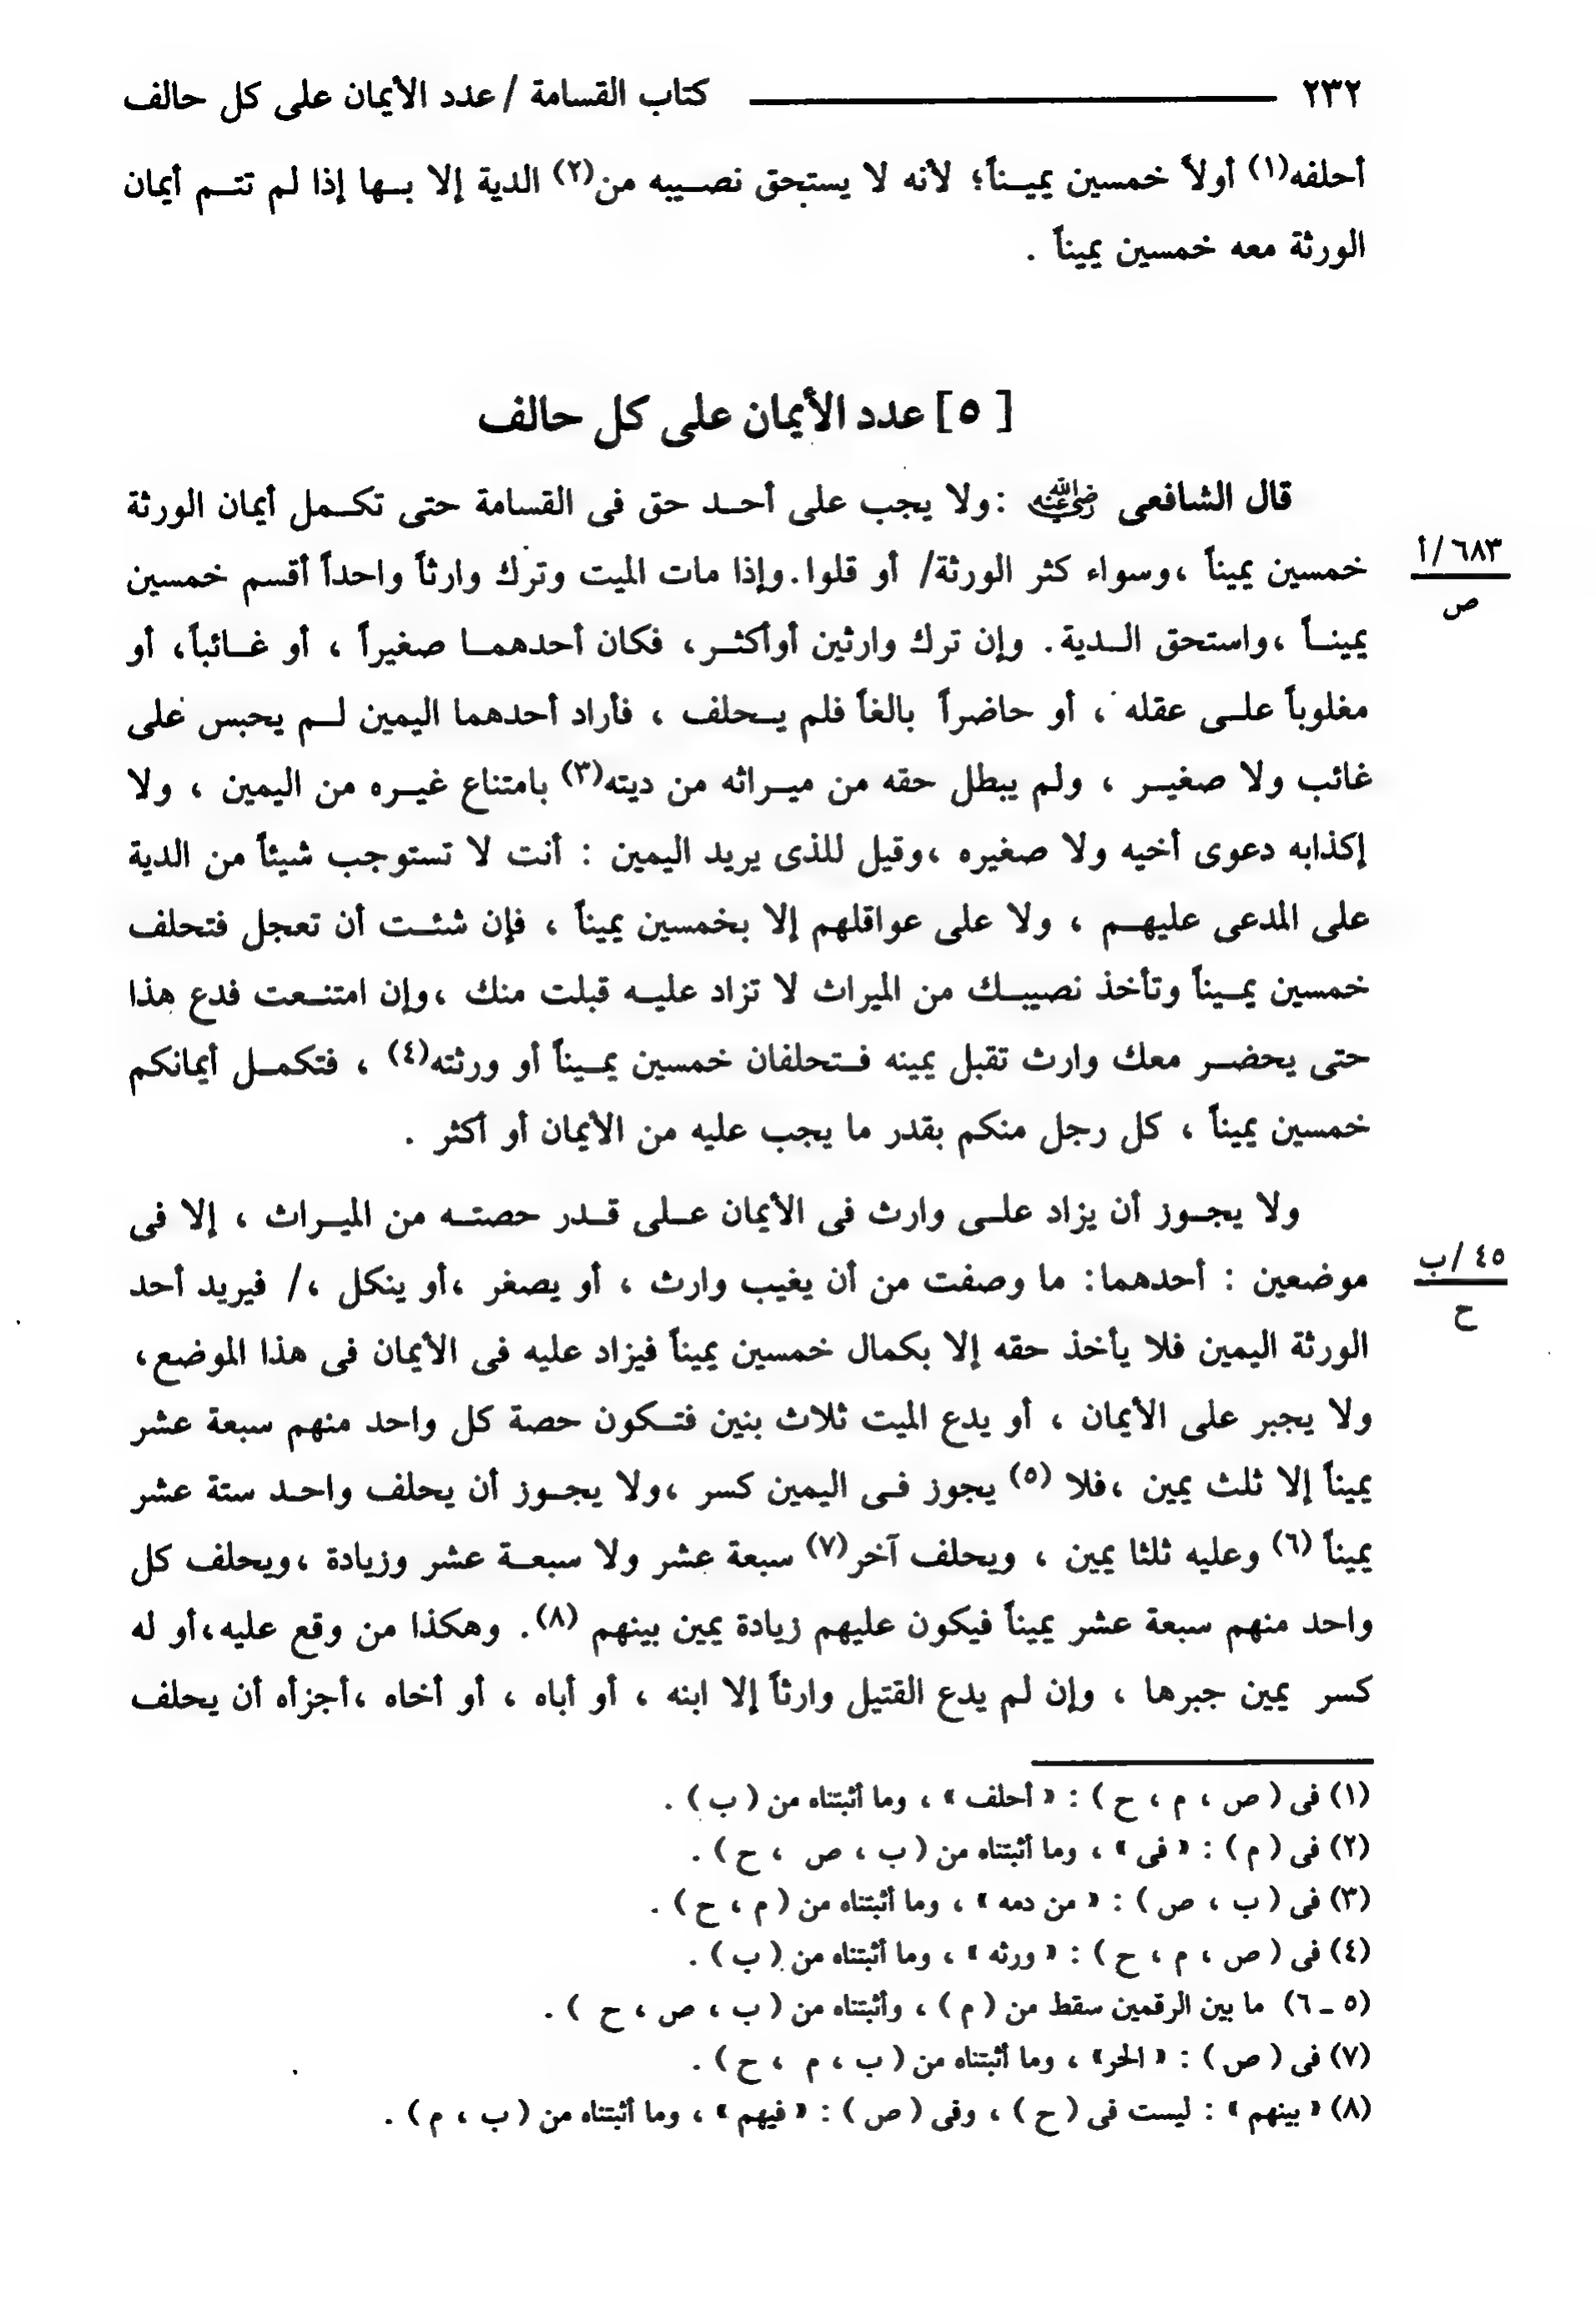 ٢٣٢ كتاب القسامة / عدد الأيمان على كل حالف
أحلفه(١) أولاً خمسين يميناً؛ لأنه لا يستحق نصيبه من(٢) الدية إلا بها إذا لم تتم أيمان
الورثة معه خمسين يميناً .
[ ٥ ] عدد الأيمان على كل حالف
قال الشافعى رضي الله عنه : ولا يجب على أحد حق فى القسامة حتى تكمل أيمان الورثة
خمسين يميناً ، وسواء كثر الورثة/ أو قلوا . وإذا مات الميت وترك وارثاً واحداً أقسم خمسين
٦٨٣/أ
ص
يميناً ، واستحق الدية . وإن ترك وارثين أوأكثر ، فكان أحدهما صغيراً ، أو غائباً ، أو
مغلوباً على عقله ، أو حاضراً بالغاً فلم يحلف ، فأراد أحدهما اليمين لم يحبس على
غائب ولا صغير ، ولم يبطل حقه من ميراثه من ديته(٣) بامتناع غيره من اليمين ، ولا
إكذابه دعوى أخيه ولا صغيره ، وقيل للذى يريد اليمين : أنت لا تستوجب شيئاً من الدية
على المدعى عليهم ، ولا على عواقلهم إلا بخمسين يميناً ، فإن شئت أن تعجل فتحلف
خمسين يميناً وتأخذ نصيبك من الميراث لا تزاد عليه قبلت منك ، وإن امتنعت فدع هذا
حتى يحضر معك وارث تقبل يمينه فتحلفان خمسين يميناً أو ورثته(٤) ، فتكمل أيمانكم
خمسين يميناً ، كل رجل منكم بقدر ما يجب عليه من الأيمان أو أكثر .
ولا يجوز أن يزاد على وارث فى الأيمان على قدر حصته من الميراث ، إلا فى
موضعين : أحدهما : ما وصفت من أن يغيب وارث ، أو يصغر ، أو ينكل ،/ فيريد أحد
٤٥/ب
ح
الورثة اليمين فلا يأخذ حقه إلا بكمال خمسين يميناً فيزاد عليه فى الأيمان فى هذا الموضع ،
ولا يجبر على الأيمان ، أو يدع الميت ثلاث بنين فتكون حصة كل واحد منهم سبعة عشر
يميناً إلا ثلث يمين ، فلا (٥) يجوز فى اليمين كسر ، ولا يجوز أن يحلف واحد ستة عشر
يميناً (٦) وعليه ثلثا يمين ، ويحلف آخر(٧) سبعة عشر ولا سبعة عشر وزيادة ، ويحلف كل
واحد منهم سبعة عشر يميناً فيكون عليهم زيادة يمين بينهم (٨). وهكذا من وقع عليه ، أو له
كسر يمين جبرها ، وإن لم يدع القتيل وارثاً إلا ابنه ، أو أباه ، أو أخاه ، أجزأه أن يحلف
(١) فى ( ص ، م ، ح ) : « أحلف » ، وما أثبتناه من ( ب ) .
(٢) فى ( م ) : « فى » ، وما أثبتناه من ( ب ، ص ، ح ) .
(٣) فى ( ب ، ص ) : « من دمه » ، وما أثبتناه من ( م ، ح ) .
(٤) فى ( ص ، م ، ح ) : « ورثه » ، وما أثبتناه من ( ب ) .
(٥ ـ ٦) ما بين الرقمين سقط من ( م ) ، وأثبتناه من ( ب ، ص ، ح ) .
(٧) فى ( ص ) : « الحر » ، وما أثبتناه من ( ب ، م ، ح ) .
(٨) « بينهم » : ليست فى ( ح ) ، وفى ( ص ) : « فيهم » ، وما أثبتناه من ( ب ، م ) .